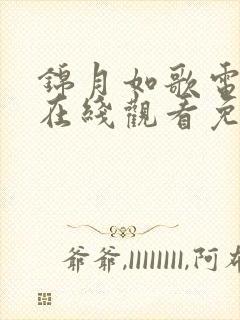 錦月如歌電
在綫觀看免
爺爺,llllllll,阿布